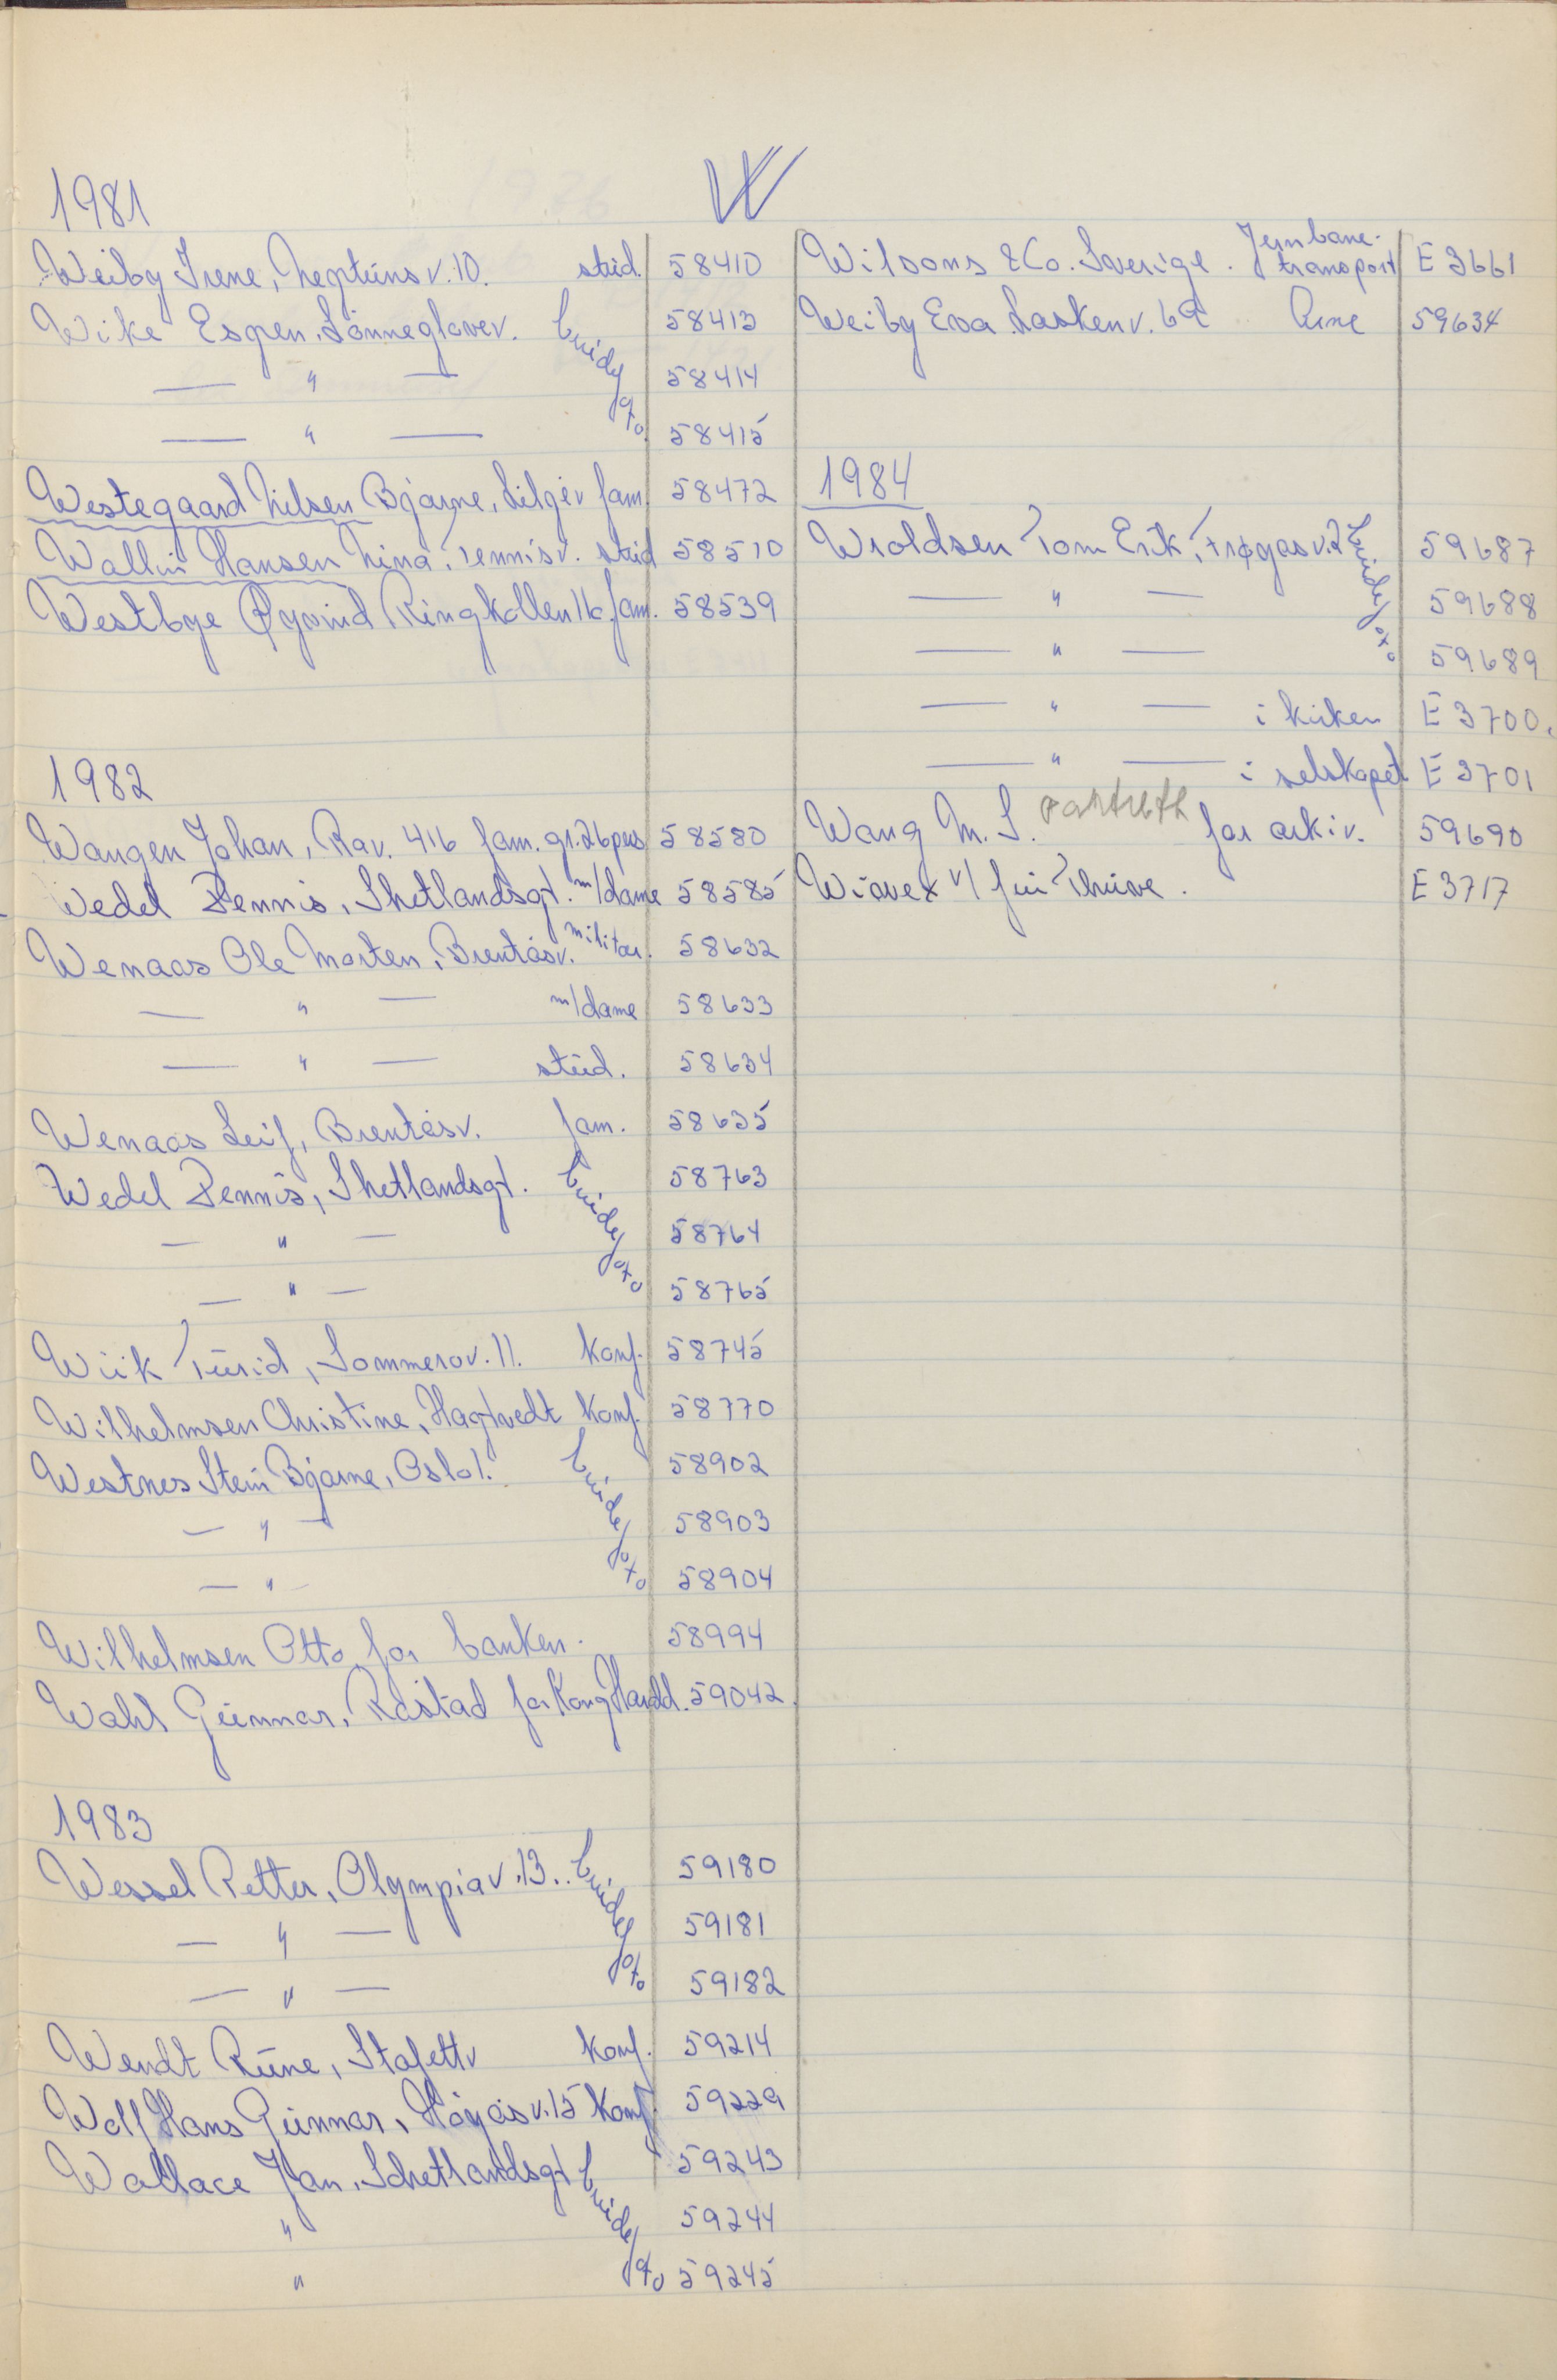 W
1981
Weiby Irene, Neptuns v. 10. stud. 58410
Wike Espen, Lønneglovev. brudefoto 58413
— " — 58414
— " — 58415
Westegaard Nilsen Bjarne, Liljev fam. 58472
Wallin Hansen Nina, Tennisv. stud 58510
Westbye Øyvind Ringkollen 1b. fam. 58539
1982
Wangen Johan, Rav. 41b fam. gr. 26 pers 58580
Wedel Dennis, Shetlandsgt. m/dame 58585
Wenaas Ole Morten, Brentåsv. militær. 58632
— " — m/dame 58633
— " — stud. 58634
Wenaas Leif, Brentåsv. fam. 58635
Wedel Dennis, Shetlandsgt. brudefoto 58763
— " — 58764
— " — 58765
Wiik Turid, Sommerov. 11. Konf. 58745
Wilhelmsen Christine, Hagtvedt Konf. 58770
Westnes Stein Bjarne, Oslo 1. brudefoto 58902
— " — 58903
— " — 58904
Wilhelmsen Otto for banken. 58994
Wahl Gunnar, Råstad for Kong Harald. 59042
1983
Wessel Petter, Olympiav. 13.. brudefoto 59180
— " — 59181
— " — 59182
Wendt Rune, Stafettv Konf. 59214
Wolf Hans Gunnar, Høyåsv. 15 Konf. 59229
Wallace Jan, Schetlandsgt brudefoto 59243
" 59244
" 59245
Wilsons & Co. Sverige. Jernbane-transport E 3661
Weiby Eva Laskenv. 69 Arne 59634
1984
Wroldsen Tom Erik, Frøyas v. 2 brudefoto 59687
— " — 59688
— " — 59689
— " — i kirken E 3700.
— " — i selskapet E 3701
Wang M. S. portrett for arkiv. 59690
Wiovex v/ fru Thune. E 3717